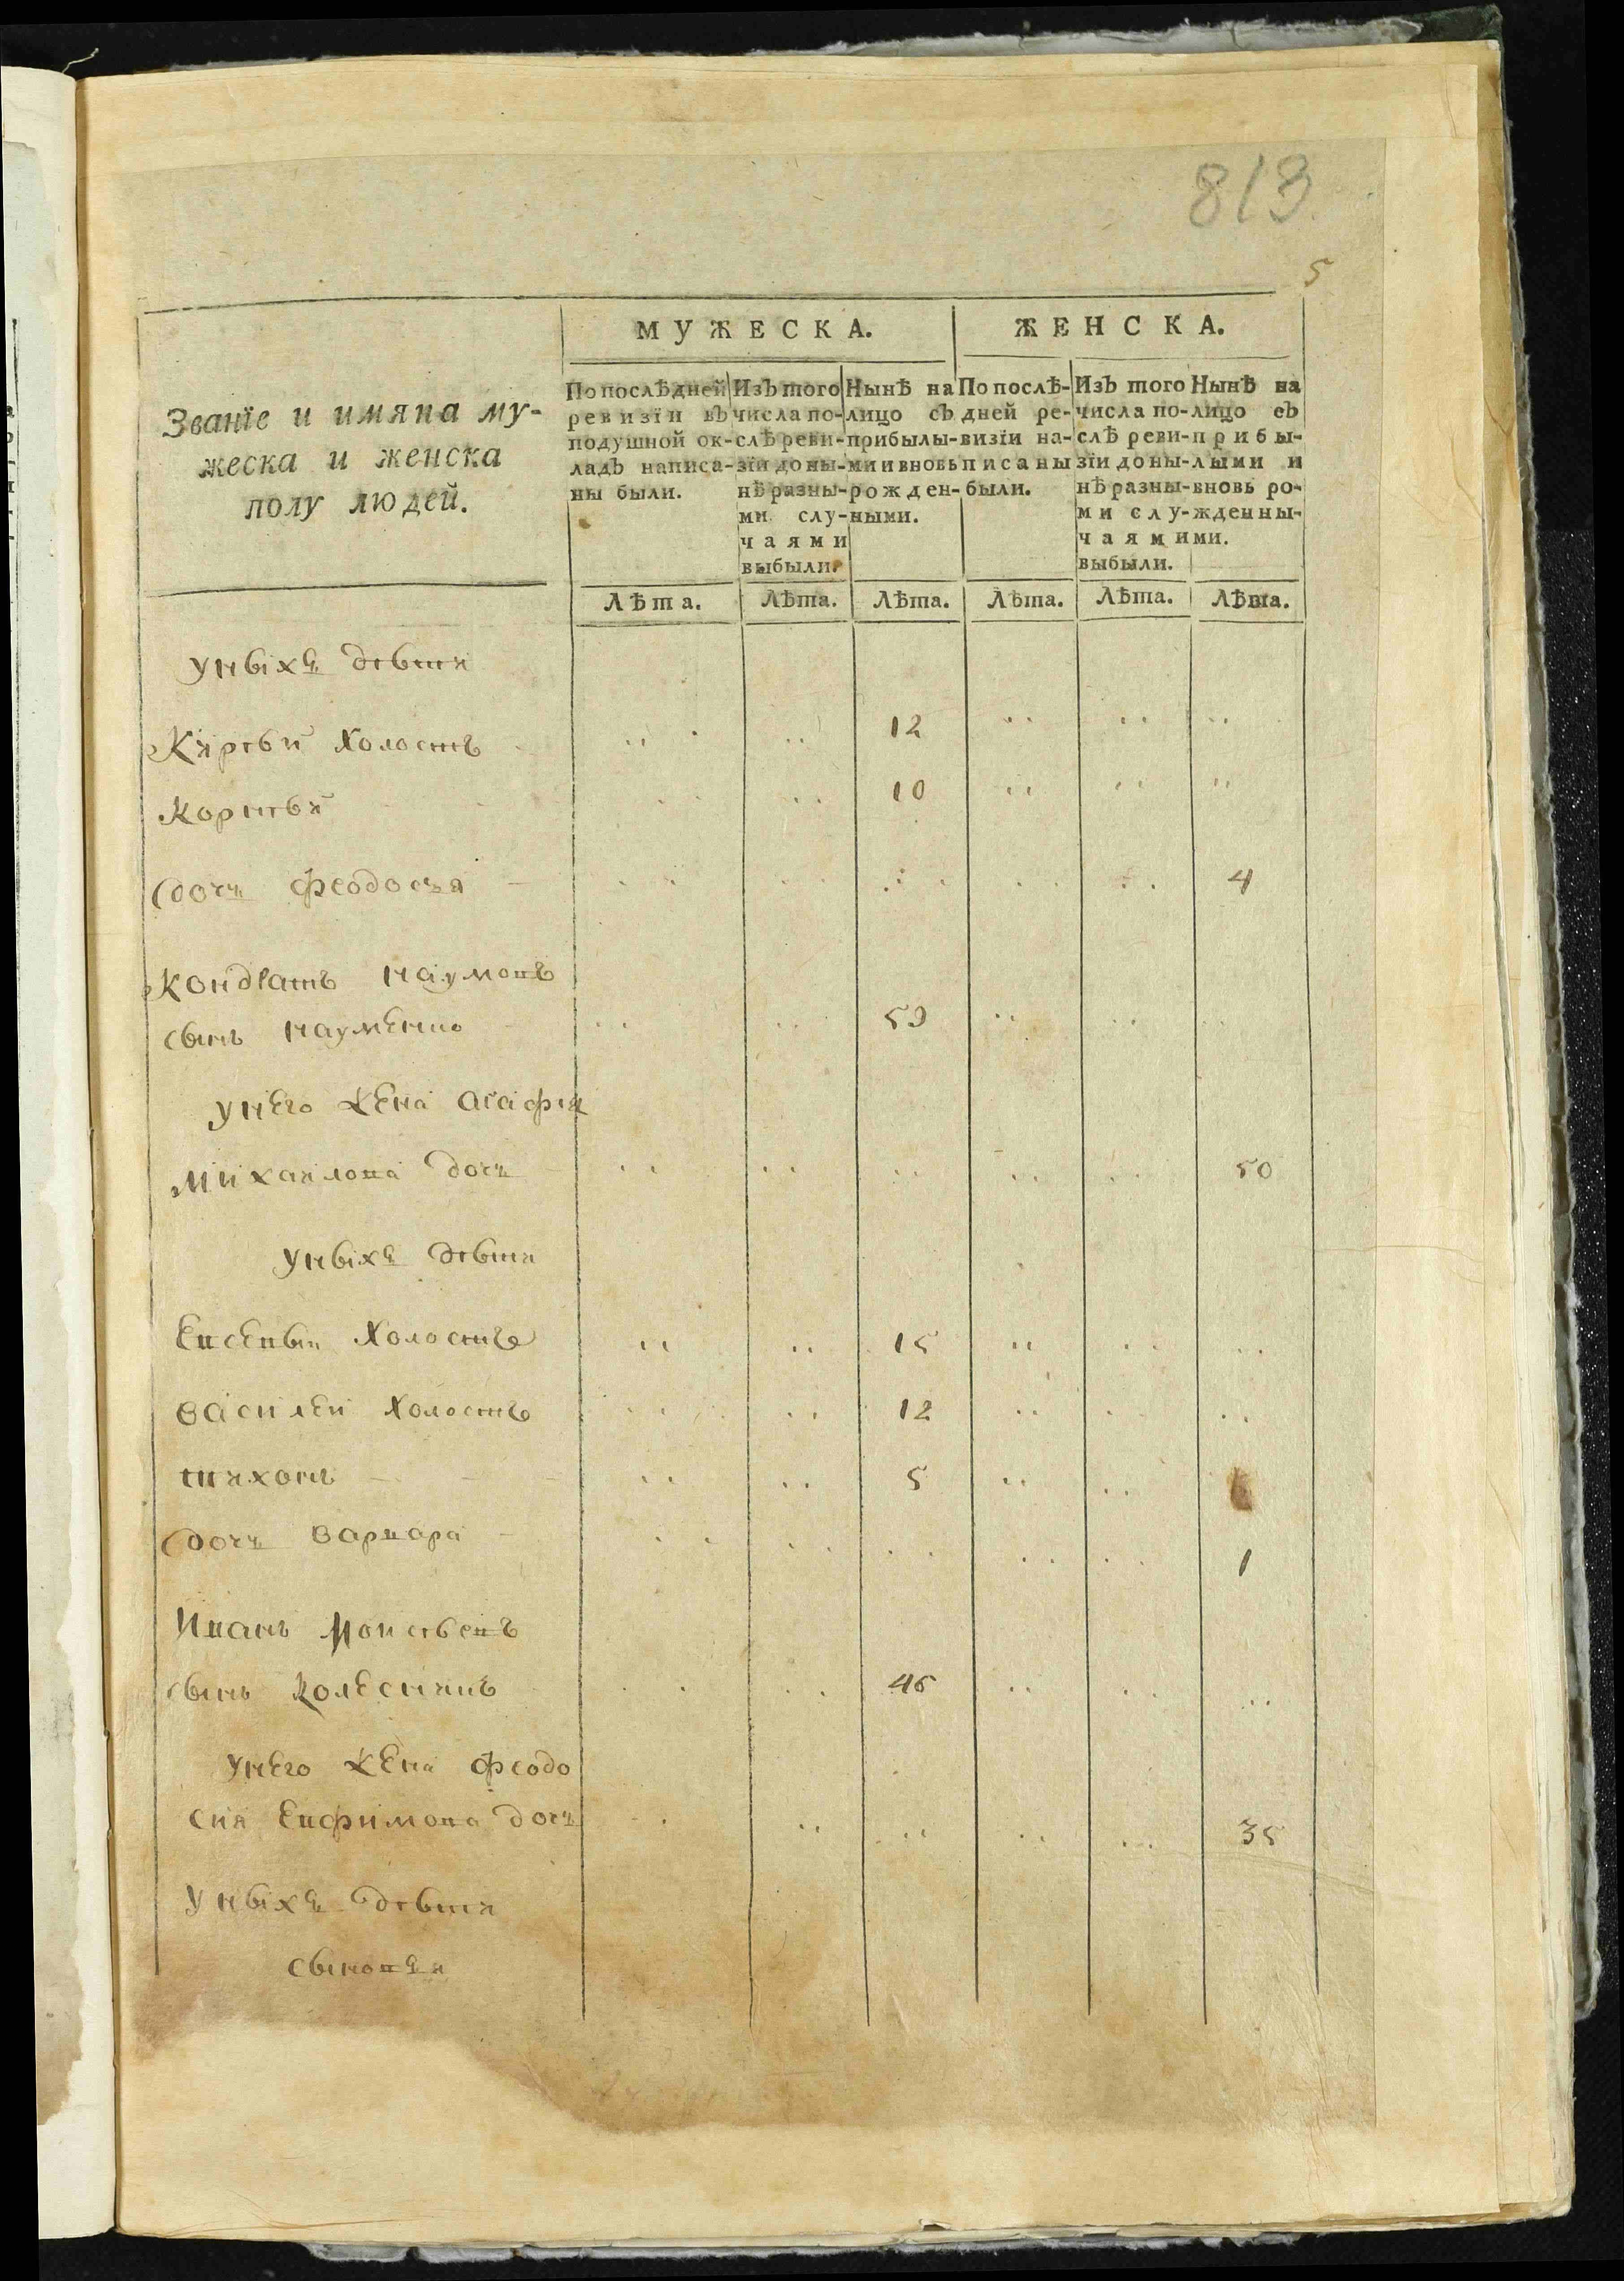 813
5
МУЖЕСКА.
ЖЕНСКА.
Званїе и имяна му-
жеска и женска
полу людей.
По послѣдней
ревизїи въ
подушной ок-
ладъ написа-
ны были.
Изъ того
числа по-
слѣ реви-
зїи до ны-
нѣ разны-
ми слу-
чаями
выбыли.
Нынѣ на
лицо съ
прибылы-
ми и вновь
рожден-
ными.
По послѣ-
дней ре-
визїи на-
писаны
были.
Изъ того
числа по-
слѣ реви-
зїи до ны-
нѣ разны-
ми слу-
чаями
выбыли.
Нынѣ на
лицо съ
прибы-
лыми и
вновь ро-
жденны-
ми.
Лѣта. Лѣта. Лѣта. Лѣта. Лѣта. Лѣта.
уныхъ дѣти
Кирѣй холостъ 12
Корнѣй 10
дочь феодосья 4
Кондратъ наумовъ
сынъ науменко 59
унего жена агафия
михаилова дочь 50
уныхъ дѣти
Евсевый холостъ 15
василей холостъ 12
тихонъ 5
дочь варвара 1
Иванъ моисѣевъ
сынъ колесникъ 46
унего жена феодо
сия Евфимова дочь 35
уныхъ дѣти
сыновья